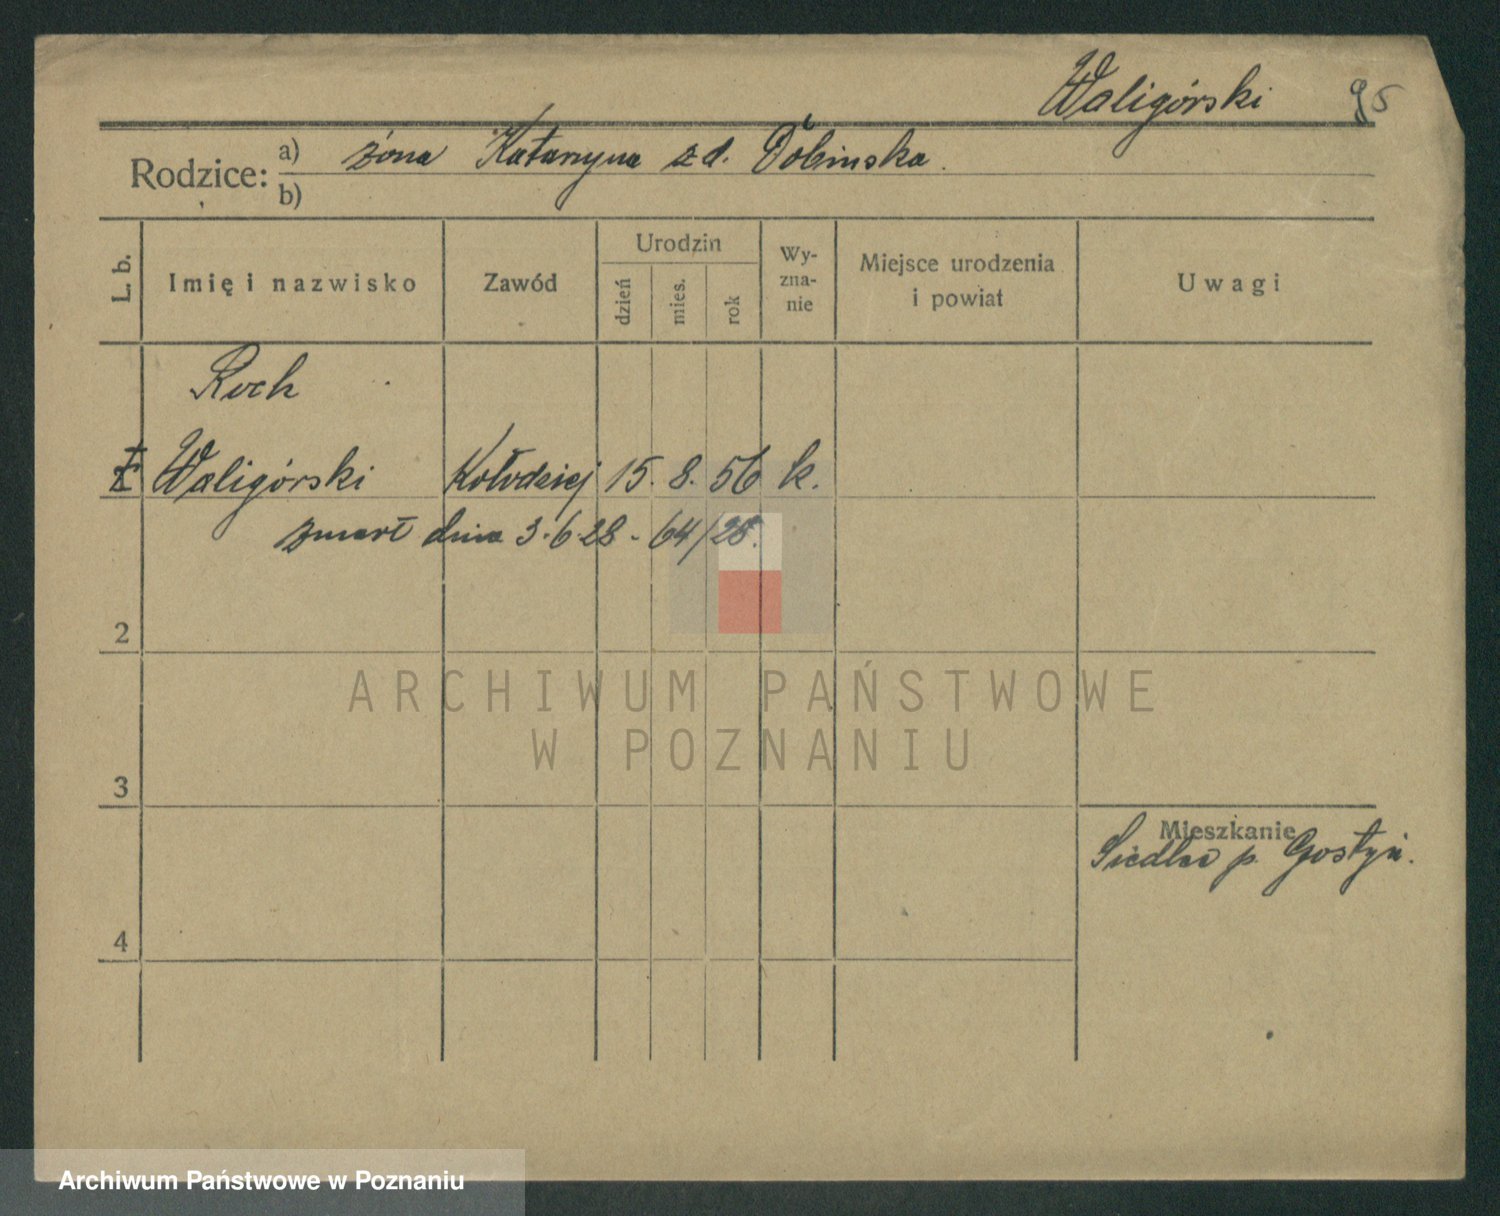 Waligórski 95
Rodzice: a) żona Katarzyna z d. Dobinska.
b)
L. b. Imię i nazwisko Zawód Urodzin dzień mies. rok Wy-zna-nie Miejsce urodzenia i powiat Uwagi
Roch
Waligórski Kołodziej 15. 8. 56 k.
zmarł dnia 3.6.28 - 64/28.
2
ARCHIWUM PAŃSTWOWE
W POZNANIU
3
Mieszkanie
Siedlec p. Gostyń.
4
Archiwum Państwowe w Poznaniu